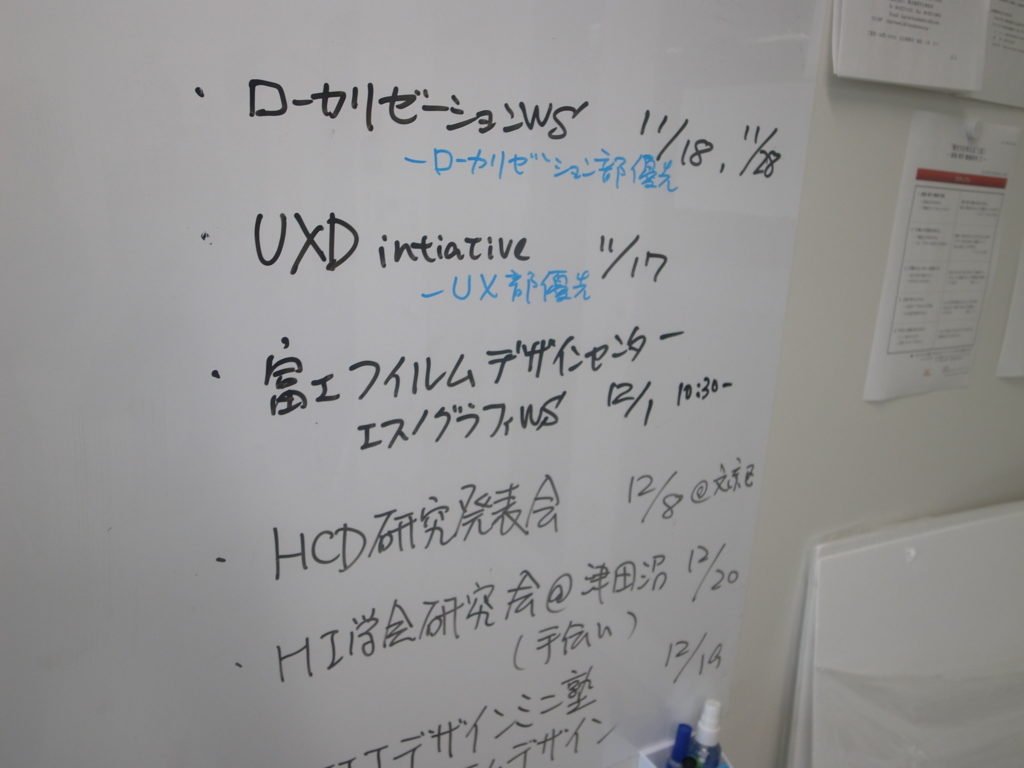 ・ ローカリゼーションWS 11/18, 11/28
－ローカリゼーション部優先
・ UXD intiative 11/17
－UX部優先
・ 富士フイルムデザインセンター
エスノグラフィWS 12/1 10:30-
・ HCD研究発表会 12/8 @文京区
・ HI学会研究会@津田沼 12/20
(手伝い)
デザインミニ塾 12/19
デザイン